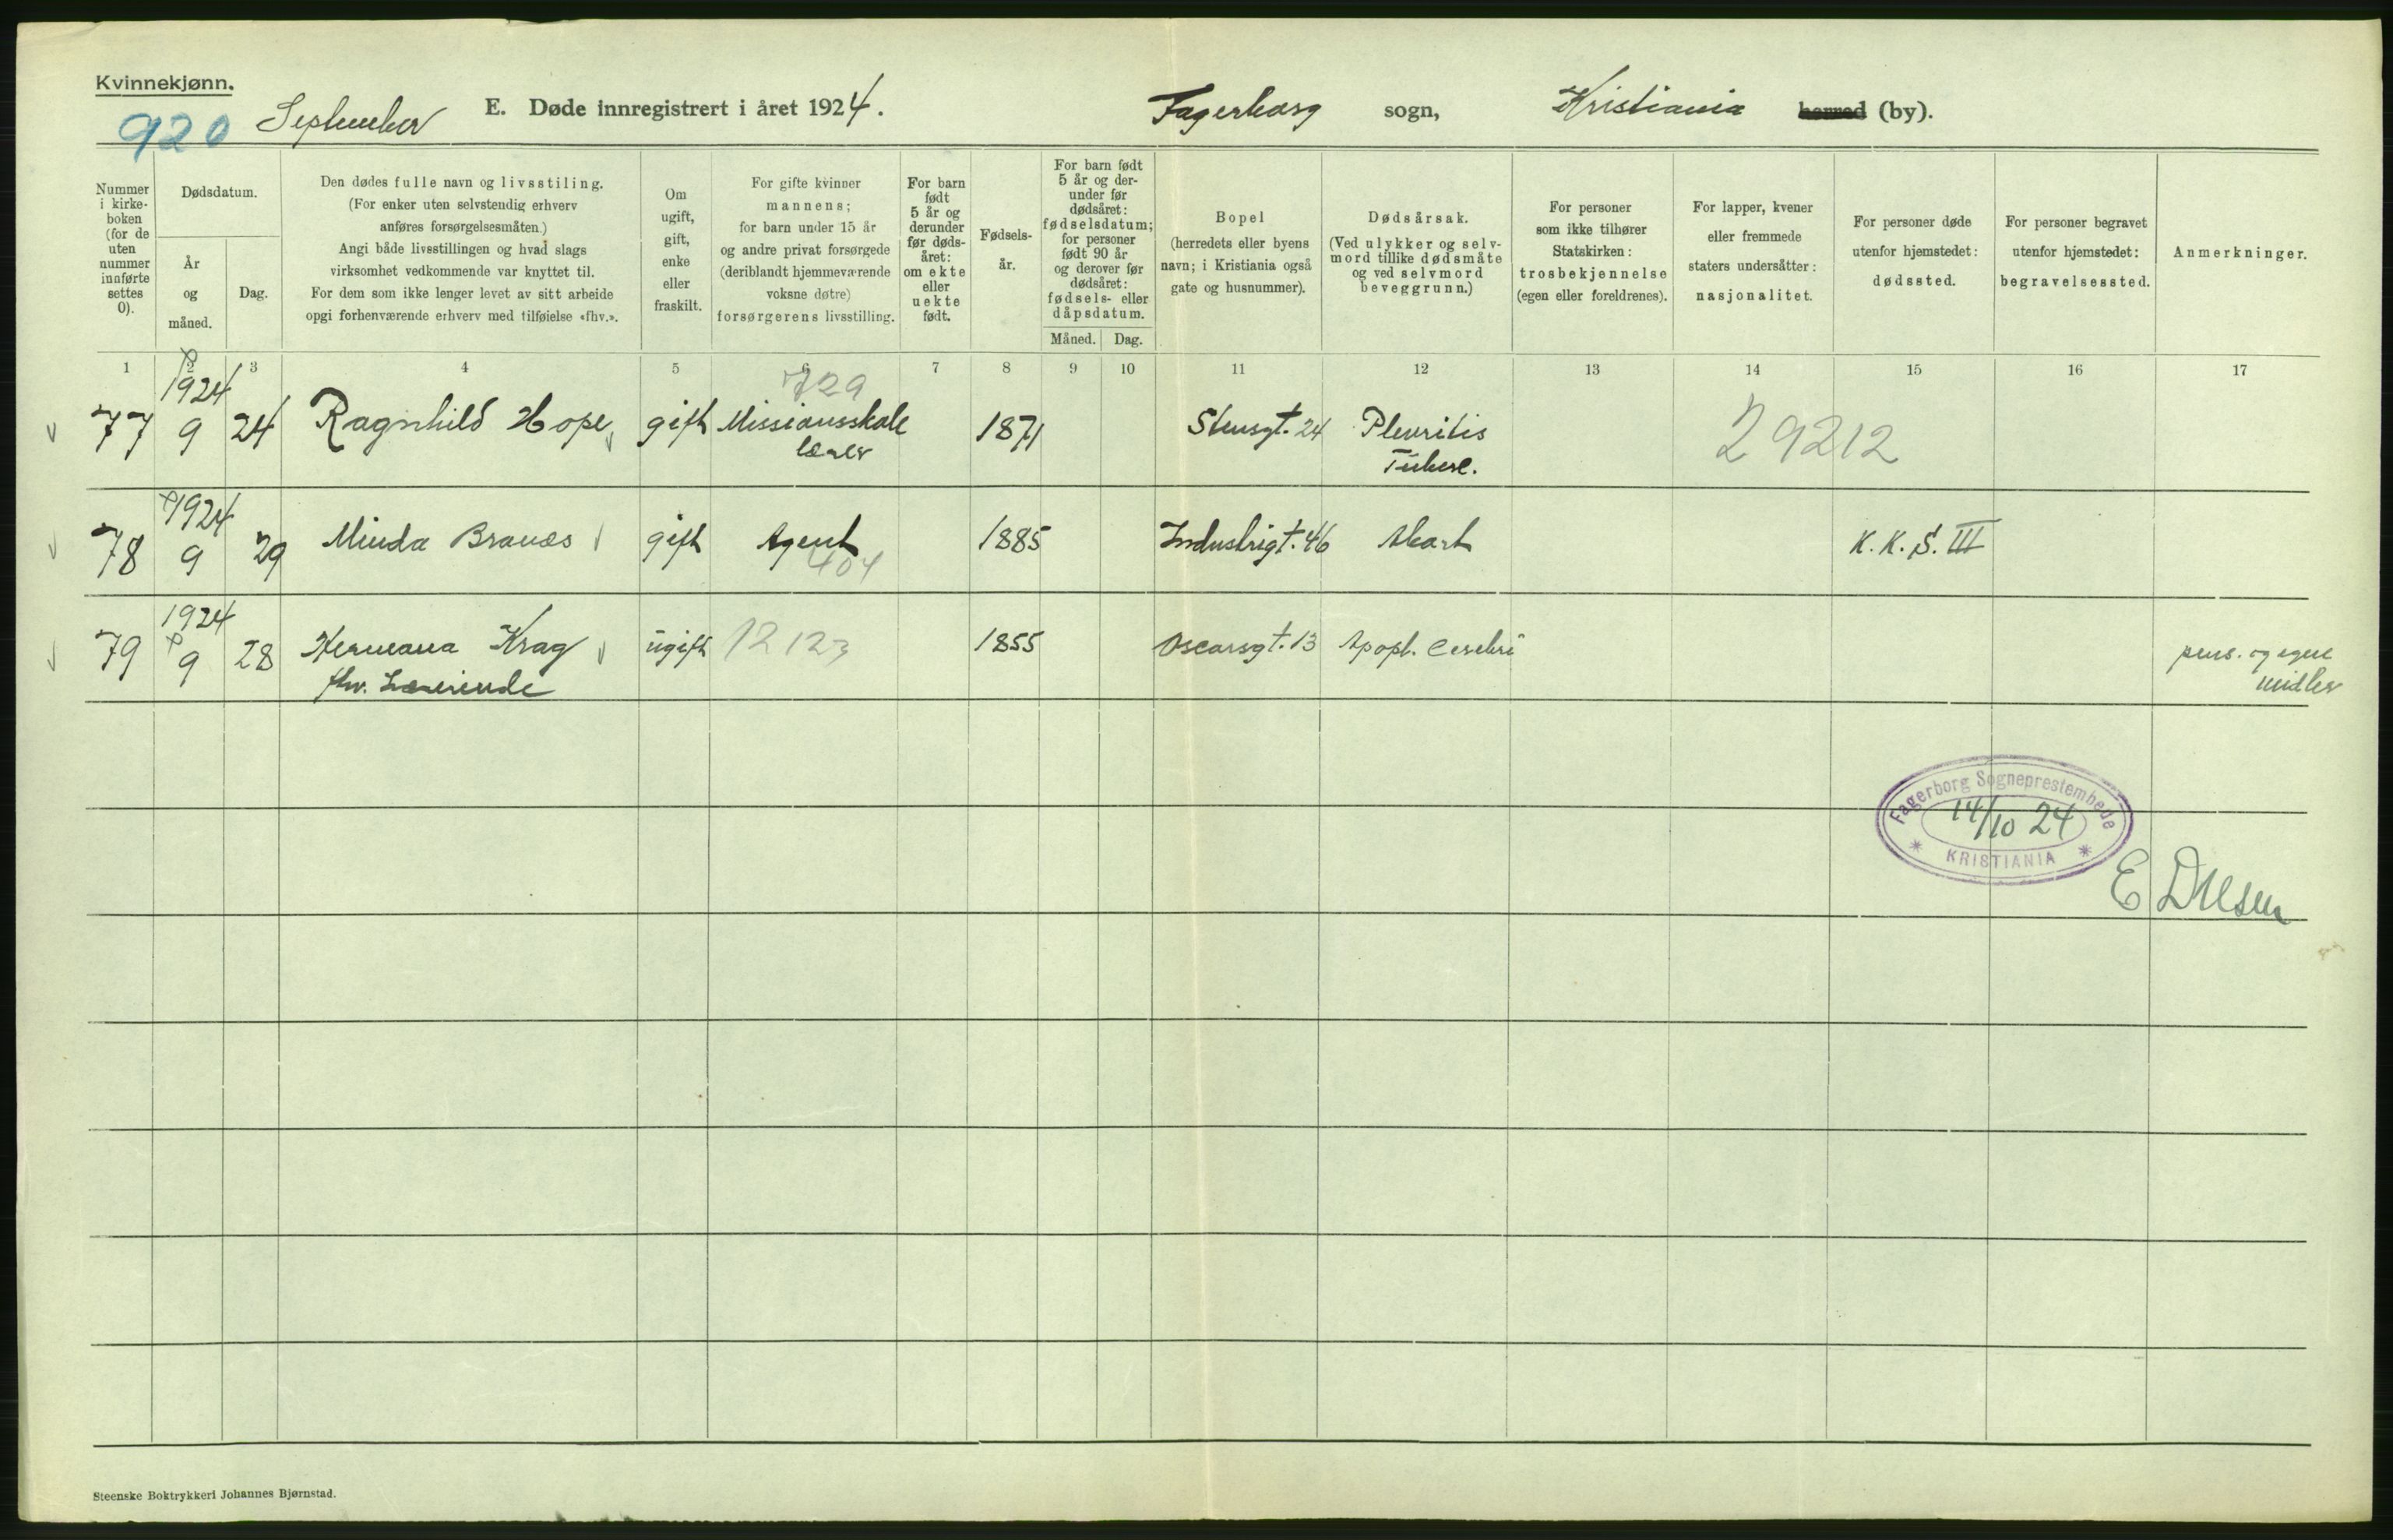 Kvinnekjønn.
920 September E. Døde innregistrert i året 1924. Fagerborg sogn, Kristiania herred (by).
Nummer i kirke-boken (for de uten nummer innførte settes 0).
Dødsdatum.
År og måned.
Dag.
Den dødes fulle navn og livsstiling.
(For enker uten selvstendig erhverv
anføres forsørgelsesmåten.)
Angi både livsstillingen og hvad slags
virksomhet vedkommende var knyttet til.
For dem som ikke lenger levet av sitt arbeide
opgi forhenværende erhverv med tilføielse «fhv.».
Om
ugift,
gift,
enke
eller
fraskilt.
For gifte kvinner
mannens;
for barn under 15 år
og andre privat forsørgede
(deriblandt hjemmeværende
voksne døtre)
forsørgerens livsstilling.
For barn
født
5 år og
derunder
før døds-
året:
om ekte
eller
uekte
født.
Fødsels-
år.
For barn født
5 år og der-
under før
dødsåret:
fødselsdatum;
for personer
født 90 år
og derover før
dødsåret:
fødsels- eller
dåpsdatum.
Måned. Dag.
Bopel
(herredets eller byens
navn; i Kristiania også
gate og husnummer).
Dødsårsak.
(Ved ulykker og selv-
mord tillike dødsmåte
og ved selvmord
beveggrunn.)
For personer
som ikke tilhører
Statskirken:
trosbekjennelse
(egen eller foreldrenes).
For lapper, kvener
eller fremmede
staters undersåtter:
nasjonalitet.
For personer døde
utenfor hjemstedet:
dødssted.
For personer begravet
utenfor hjemstedet:
begravelsessted.
Anmerkninger.
1 2 3 4 5 6 7 8 9 10 11 12 13 14 15 16 17
1924 729
77 9 24 Ragnhild Hope gift Missionsskole 1871 Stensgt. 24 Pleuritis 29212
lærer Tuberc.
1924
78 9 29 Minda Branæs gift Agent 1885 Industrigt. 46 Abort K. K. S. III
404
1924
79 9 28 Hermana Krag ugift 12123 1855 Oscarsgt. 13 Apopl. Cerebri pens. og egne
fhv. Lærerinde midler
Fagerborg Sogneprestembede
14/10 24
KRISTIANIA
Steenske Boktrykkeri Johannes Bjørnstad.